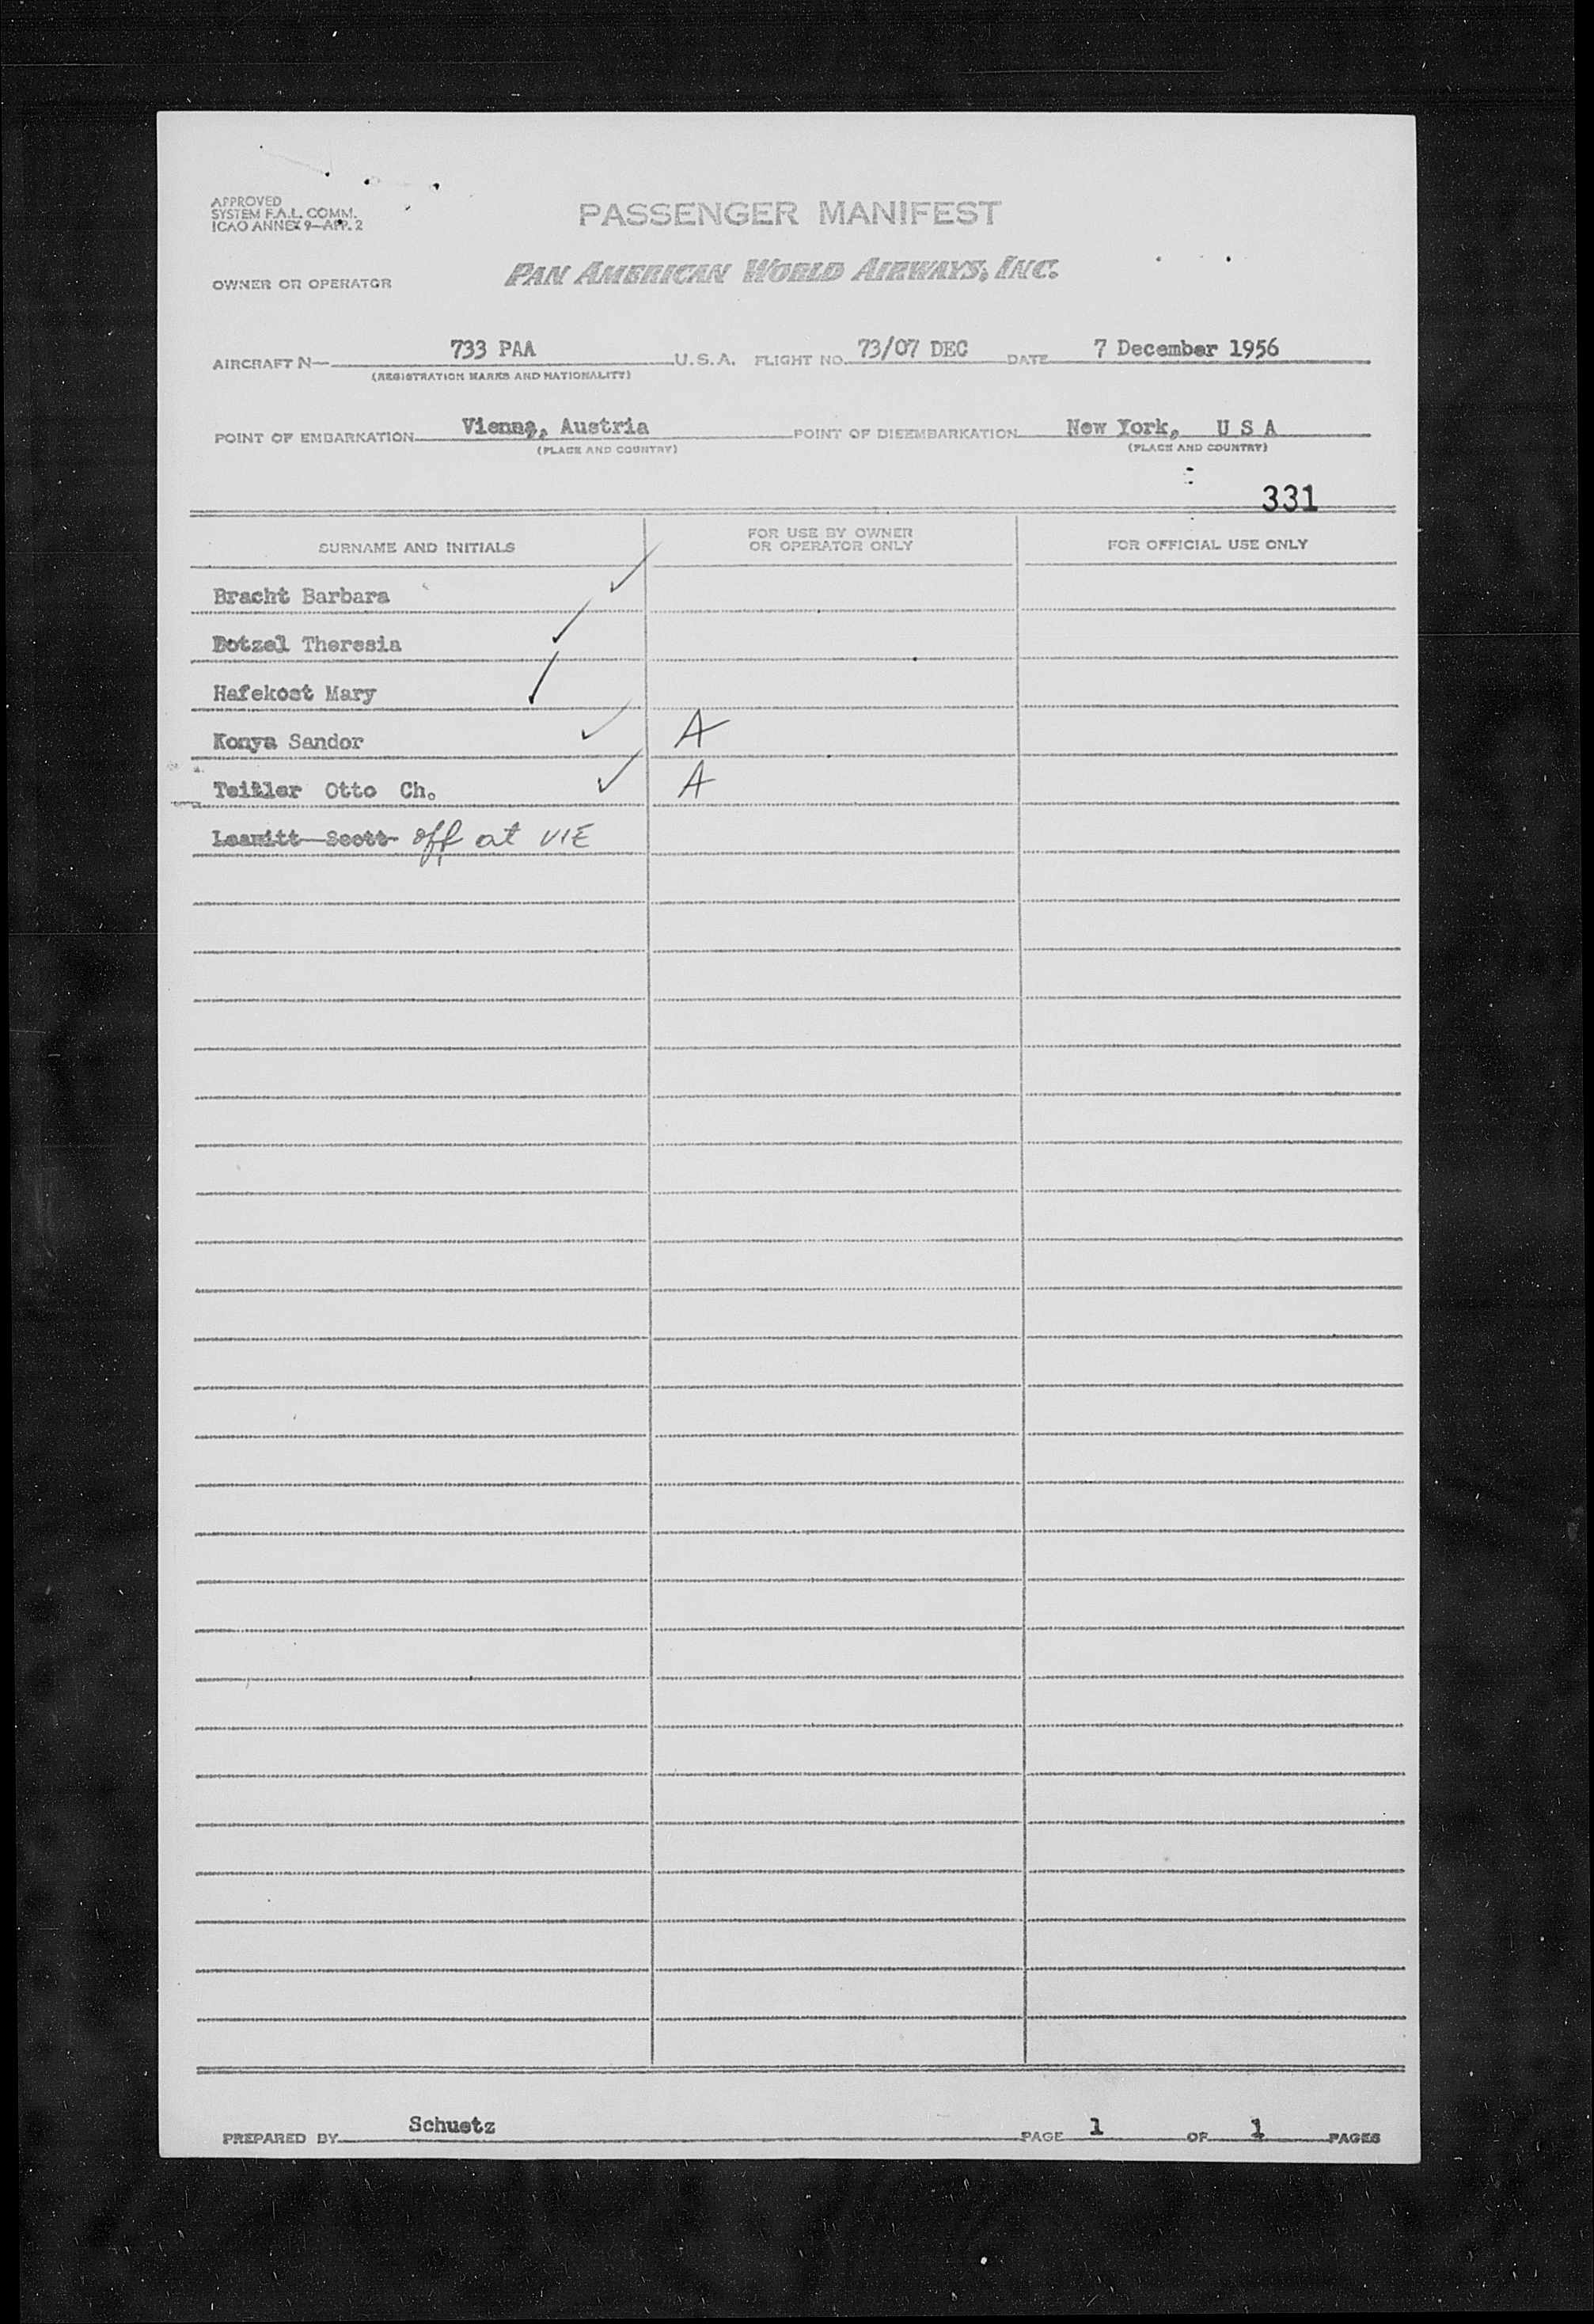 APPROVED
SYSTEM F.A.L. COMM.
ICAO ANNEX 9—APP. 2
PASSENGER MANIFEST
OWNER OR OPERATOR PAN AMERICAN WORLD AIRWAYS, INC.
AIRCRAFT N— 733 PAA U.S.A. FLIGHT NO. 73/07 DEC DATE 7 December 1956
(REGISTRATION MARKS AND NATIONALITY)
POINT OF EMBARKATION Vienna, Austria POINT OF DISEMBARKATION New York, U S A
(PLACE AND COUNTRY) (PLACE AND COUNTRY)
331
SURNAME AND INITIALS FOR USE BY OWNER OR OPERATOR ONLY FOR OFFICIAL USE ONLY
Bracht Barbara
Theresia
Hafekost Mary
Konya Sandor A
Otto Ch. A
Scott off at VIE
PREPARED BY Schuetz PAGE 1 OF 1 PAGES